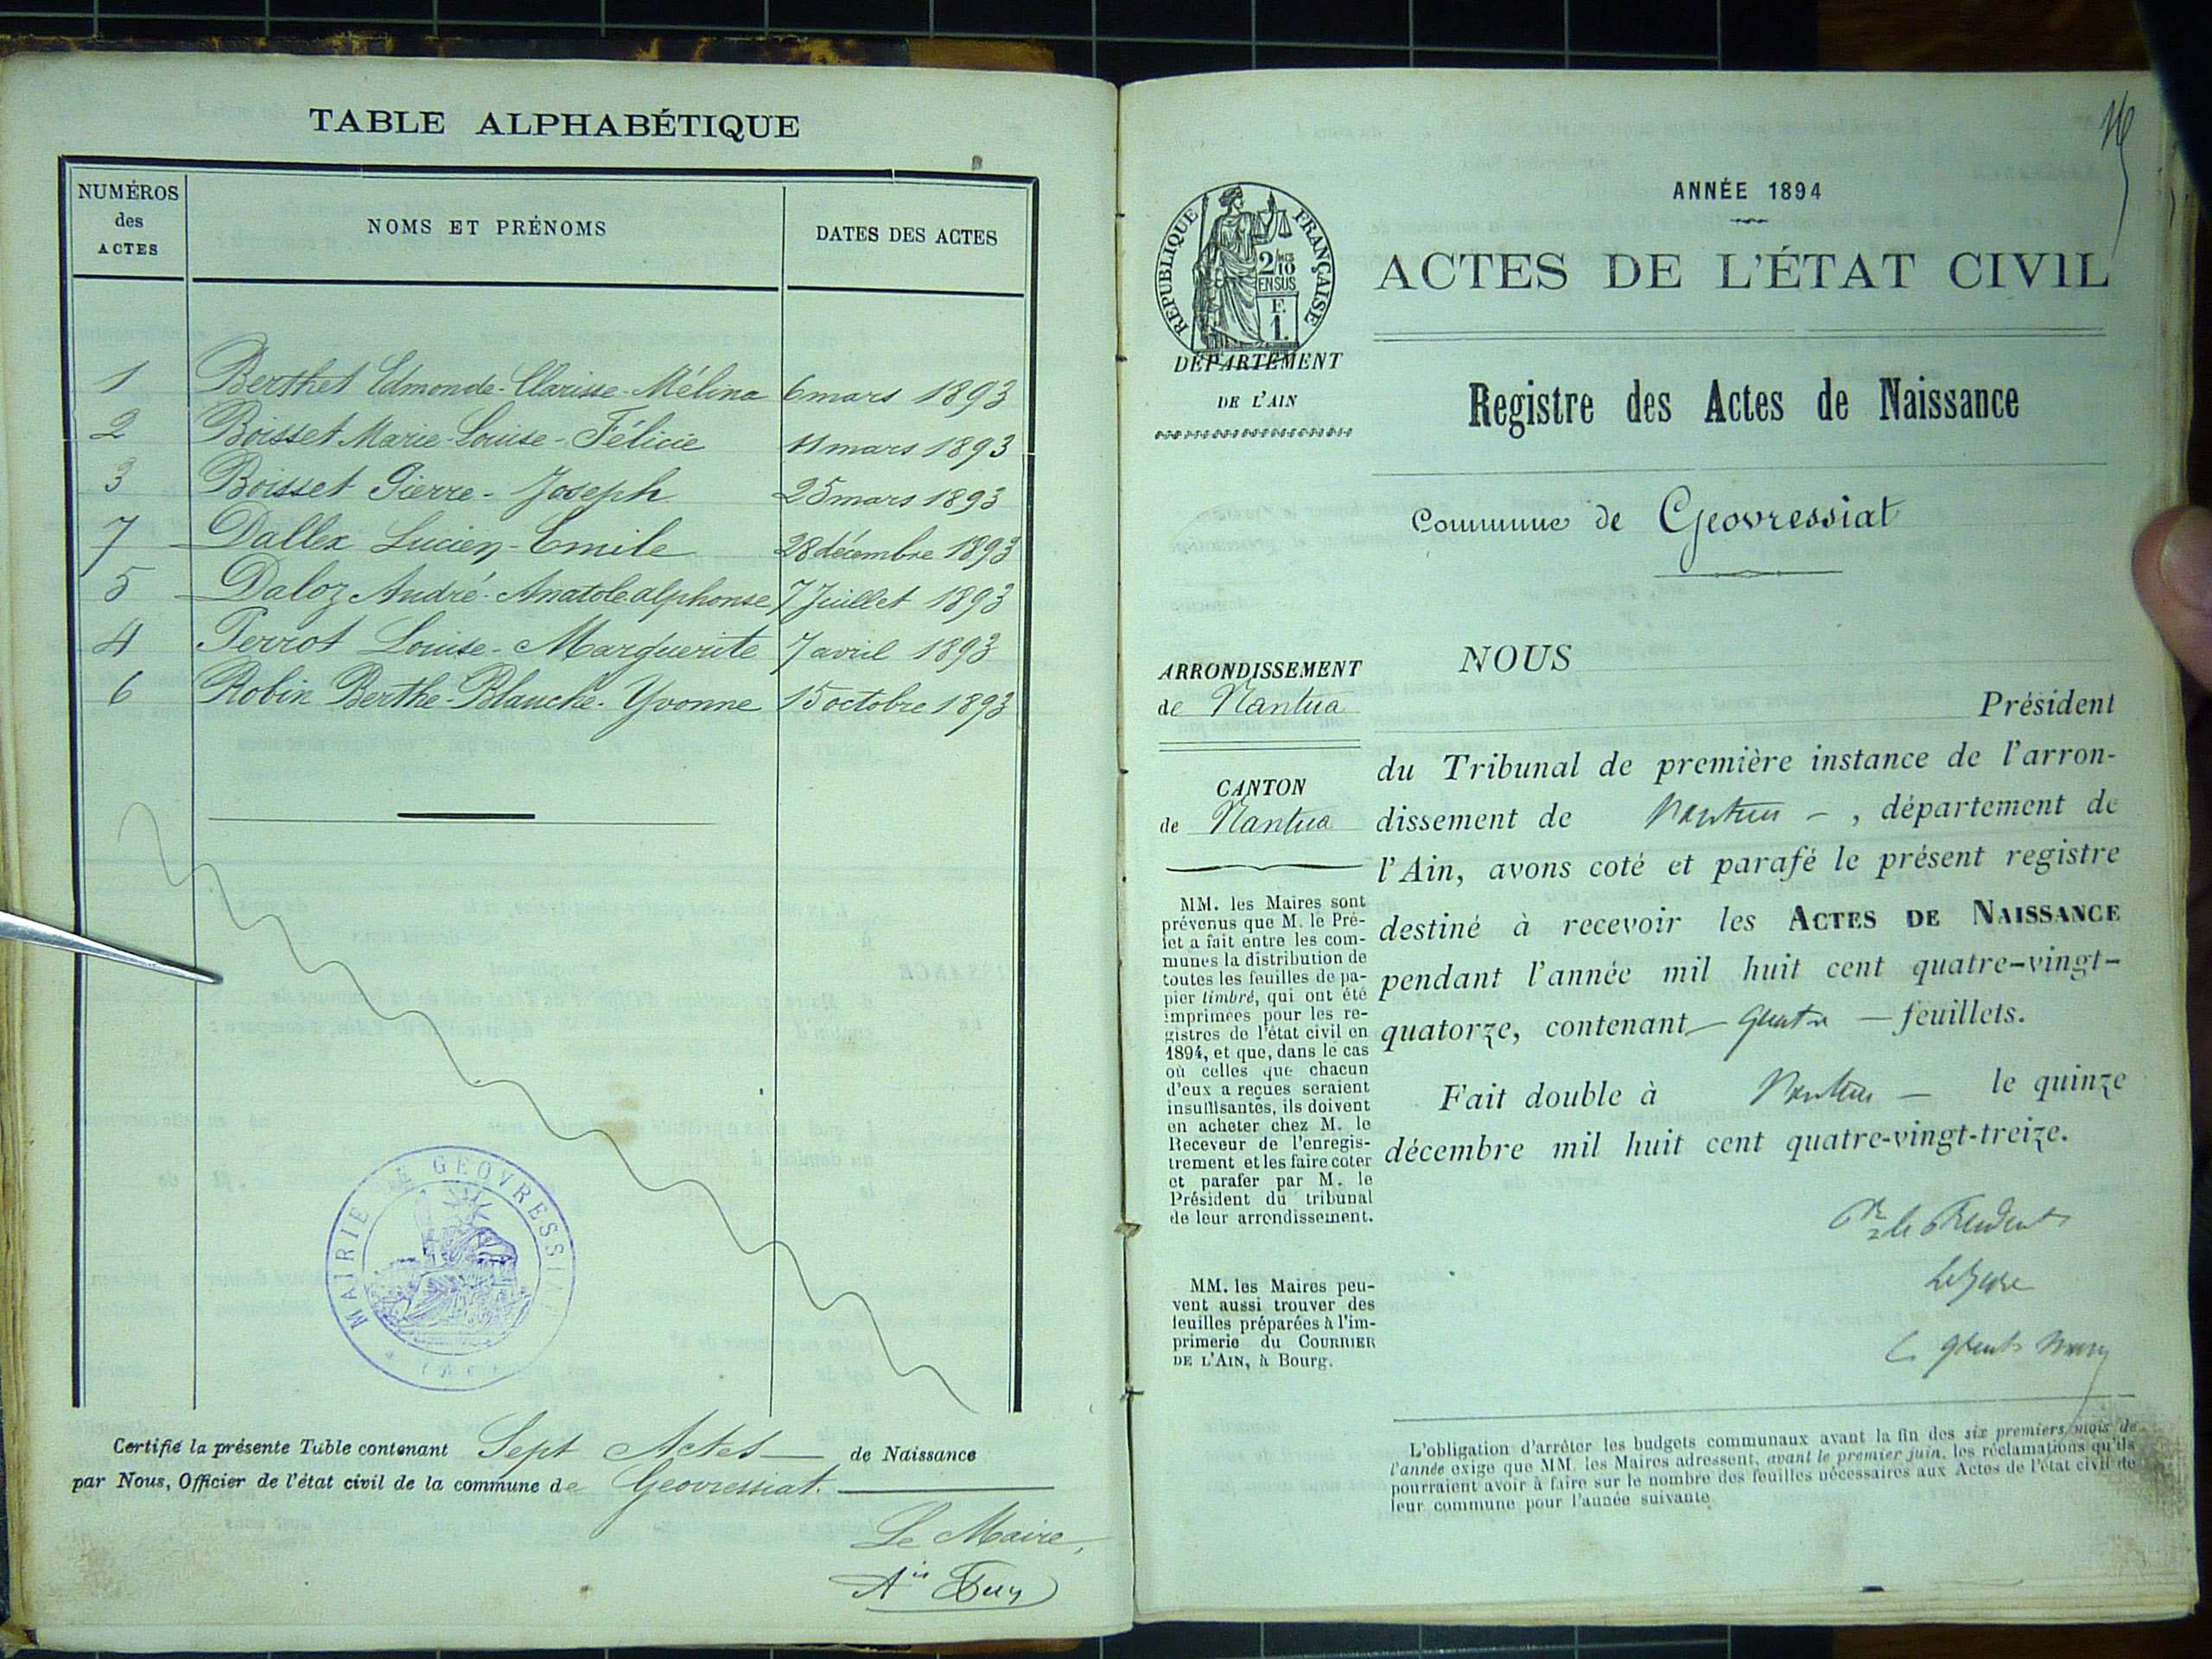 TABLE ALPHABÉTIQUE
NUMÉROS
des
ACTES
NOMS ET PRÉNOMS
DATES DES ACTES
1 Berthet Edmonde-Clarisse-Mélina 6 mars 1893
2 Boisset Marie-Louise-Félicie 11 mars 1893
3 Boisset Pierre-Joseph 25 mars 1893
7 Dallex Lucien-Emile 28 décembre 1893
5 Daloz André-Anatole alphonse 7 Juillet 1893
4 Perrot Louise-Marguerite 7 avril 1893
6 Robin Berthe-Blanche-Yvonne 15 octobre 1893
MAIRIE DE GEOVRESSIAT
Certifié la présente Table contenant Sept Actes de Naissance
par Nous, Officier de l'état civil de la commune de Geovressiat.
Le Maire,
ANNÉE 1894
ACTES DE L'ÉTAT CIVIL
RÉPUBLIQUE FRANÇAISE
2/10
EN SUS
E.
1.
DÉPARTEMENT
DE L'AIN
Registre des Actes de Naissance
Commune de Geovressiat
ARRONDISSEMENT
de Nantua
CANTON
de Nantua
MM. les Maires sont
prévenus que M. le Pré-
fet a fait entre les com-
munes la distribution de
toutes les feuilles de pa-
pier timbré, qui ont été
imprimées pour les re-
gistres de l'état civil en
1894, et que, dans le cas
où celles que chacun
d'eux a reçues seraient
insuffisantes, ils doivent
en acheter chez M. le
Receveur de l'enregis-
trement et les faire coter
et parafer par M. le
Président du tribunal
de leur arrondissement.
MM. les Maires peu-
vent aussi trouver des
feuilles préparées à l'im-
primerie du COURRIER
DE L'AIN, à Bourg.
NOUS
Président
du Tribunal de première instance de l'arron-
dissement de Nantua - , département de
l'Ain, avons coté et parafé le présent registre
destiné à recevoir les ACTES DE NAISSANCE
pendant l'année mil huit cent quatre-vingt-
quatorze, contenant - quatre - feuillets.
Fait double à Nantua - le quinze
décembre mil huit cent quatre-vingt-treize.
le Président
L'obligation d'arrêter les budgets communaux avant la fin des six premiers mois de
l'année exige que MM. les Maires adressent, avant le premier juin, les réclamations qu'ils
pourraient avoir à faire sur le nombre des feuilles nécessaires aux Actes de l'état civil de
leur commune pour l'année suivante.